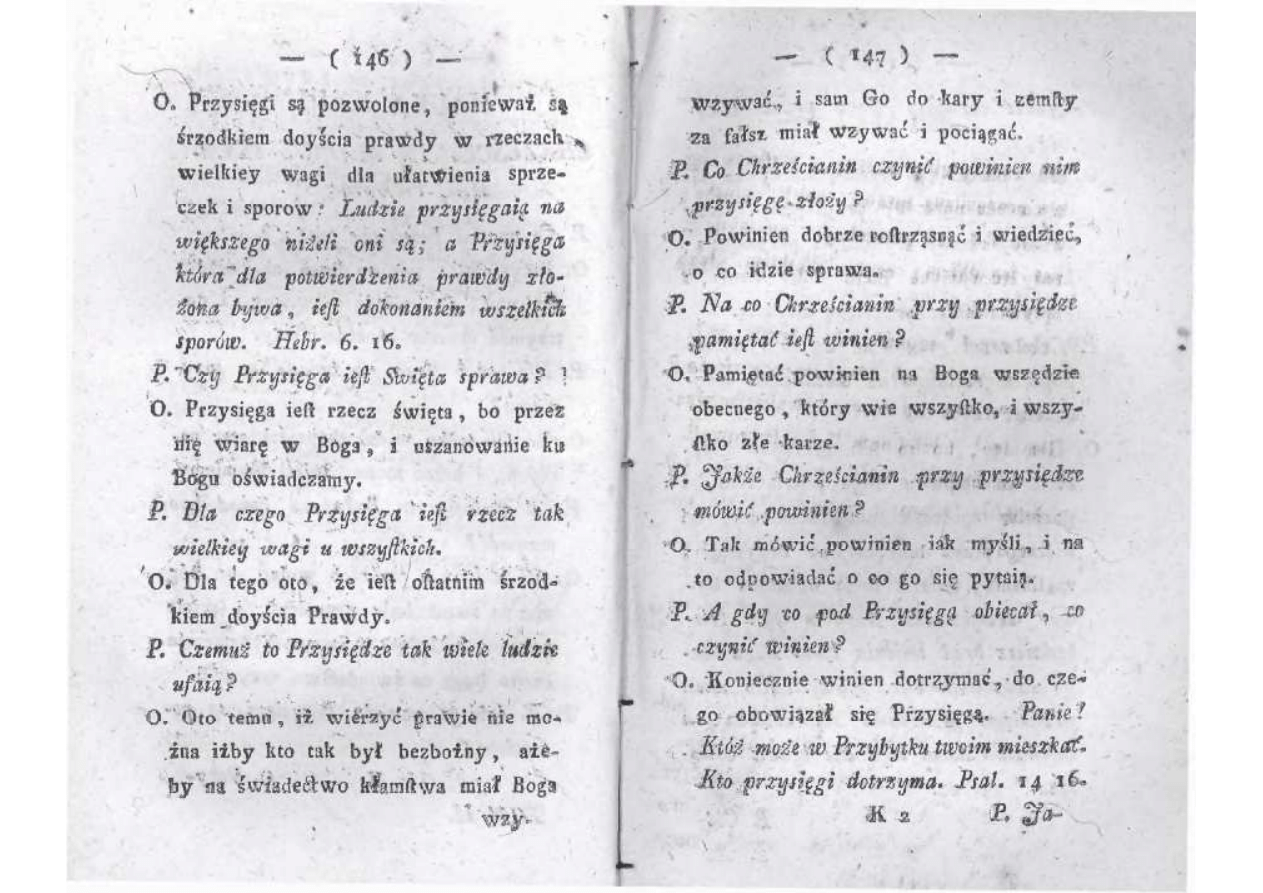 — ( 146 ) —
O. Przysięgi są pozwolone, ponieważ są
śrzodkiem doyścia prawdy w rzeczach
wielkiey wagi dla ułatwienia sprze-
czek i sporow: Ludzie przysięgaią na
większego niżeli oni są; a Przysięga
która dla potwierdzenia prawdy zło-
żona bywa, ieſt dokonaniem wszelkich
sporów. Hebr. 6. 16.
P. Czy Przysięga ieſt Swięta sprawa?
O. Przysięga ieſt rzecz święta, bo przez
nię wiarę w Boga, i uszanowanie ku
Bogu oświadczamy.
P. Dla czego Przysięga ieſt rzecz tak
wielkiey wagi u wszyſtkich.
O. Dla tego oto, że ieſt oſtatnim śrzod-
kiem doyścia Prawdy.
P. Czemuż to Przysiędze tak wiele ludzie
ufaią?
O. Oto temu, iż wierzyć prawie nie mo-
żna iżby kto tak był bezbożny, aże-
by na świadectwo kłamſtwa miał Boga
wzy-
— ( 147 ) —
wzywać, i sam Go do kary i zemſty
za fałsz miał wzywać i pociągać.
P. Co Chrześcianin czynić powinien nim
przysięgę złoży?
O. Powinien dobrze roſtrząsnąć i wiedzieć,
o co idzie sprawa.
P. Na co Chrześcianin przy przysiędze
pamiętać ieſt winien?
O. Pamiętać powinien na Boga wszędzie
obecnego, który wie wszyſtko, i wszy-
ſtko złe karze.
P. Jakże Chrześcianin przy przysiędze
mówić powinien?
O. Tak mówić powinien iak myśli, i na
to odpowiadać o co go się pytaią.
P. A gdy co pod Przysięgą obiecał, co
czynić winien?
O. Koniecznie winien dotrzymać, do cze-
go obowiązał się Przysięgą. Panie!
Któż może w Przybytku twoim mieszkać.
Kto przysięgi dotrzyma. Psal. 14 16.
K 2 P. Ja-